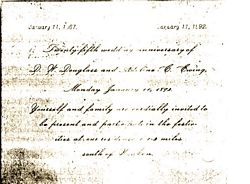 January 11, 1867. January 11, 1892.
Twenty-fifth wedding anniversary of
D. W. Douglass and Adeline C. Ewing,
Monday January 11, 1892.
Yourself and family are cordially invited to
be present and participate in the festiv-
ities at our residence miles
south of